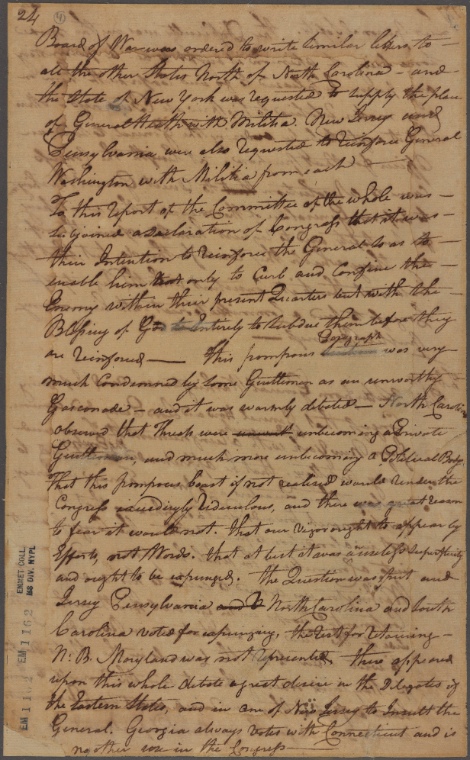 24
Board of War was ordered to write similar letters to
all the other States North of North Carolina – and
the State of New York was requested to supply the place
of General Heath with Militia New Jersey and
Pensylvania were also requested to reinforce General
Washington with Militia from each —
To this report of the Committee of the whole was
a declaration of Congress that it was
their Intention to reinforce the General so as to
enable him not only to Curb and Confine the
Enemy within their present Quarters but with the
Blessing of God Entirely to Subdue them before they
are reinforced — This pompous Paragraph was very
much Condemned by some Gentlemen as an unworthy
Gasconade – and it was warmly debated – North Carolina
observed that Threats were unbecoming a Private
Gentleman, and much more unbecoming a Political Body,
That this pompous boast if not realized would render the
Congress exceedingly ridiculous, and there was great reason
to fear it would not. that our vigor ought to appear by
Efforts, not Words. that at best it was a useless Superfluity
and ought to be expunged. the Question was put and
Jersey Pensylvania and V North Carolina and South
Carolina voted for expunging, the rest for retaining –
N. B. Maryland was not represented. There appeared
upon this whole debate a great desire in the Delegates of
the Eastern States, and in one of New Jersey to Insult the
General. Georgia always votes with Connecticut and is
no other use in the Congress —
EMMET COLL.
MSS DIV. NYPL
EM 1162
EM